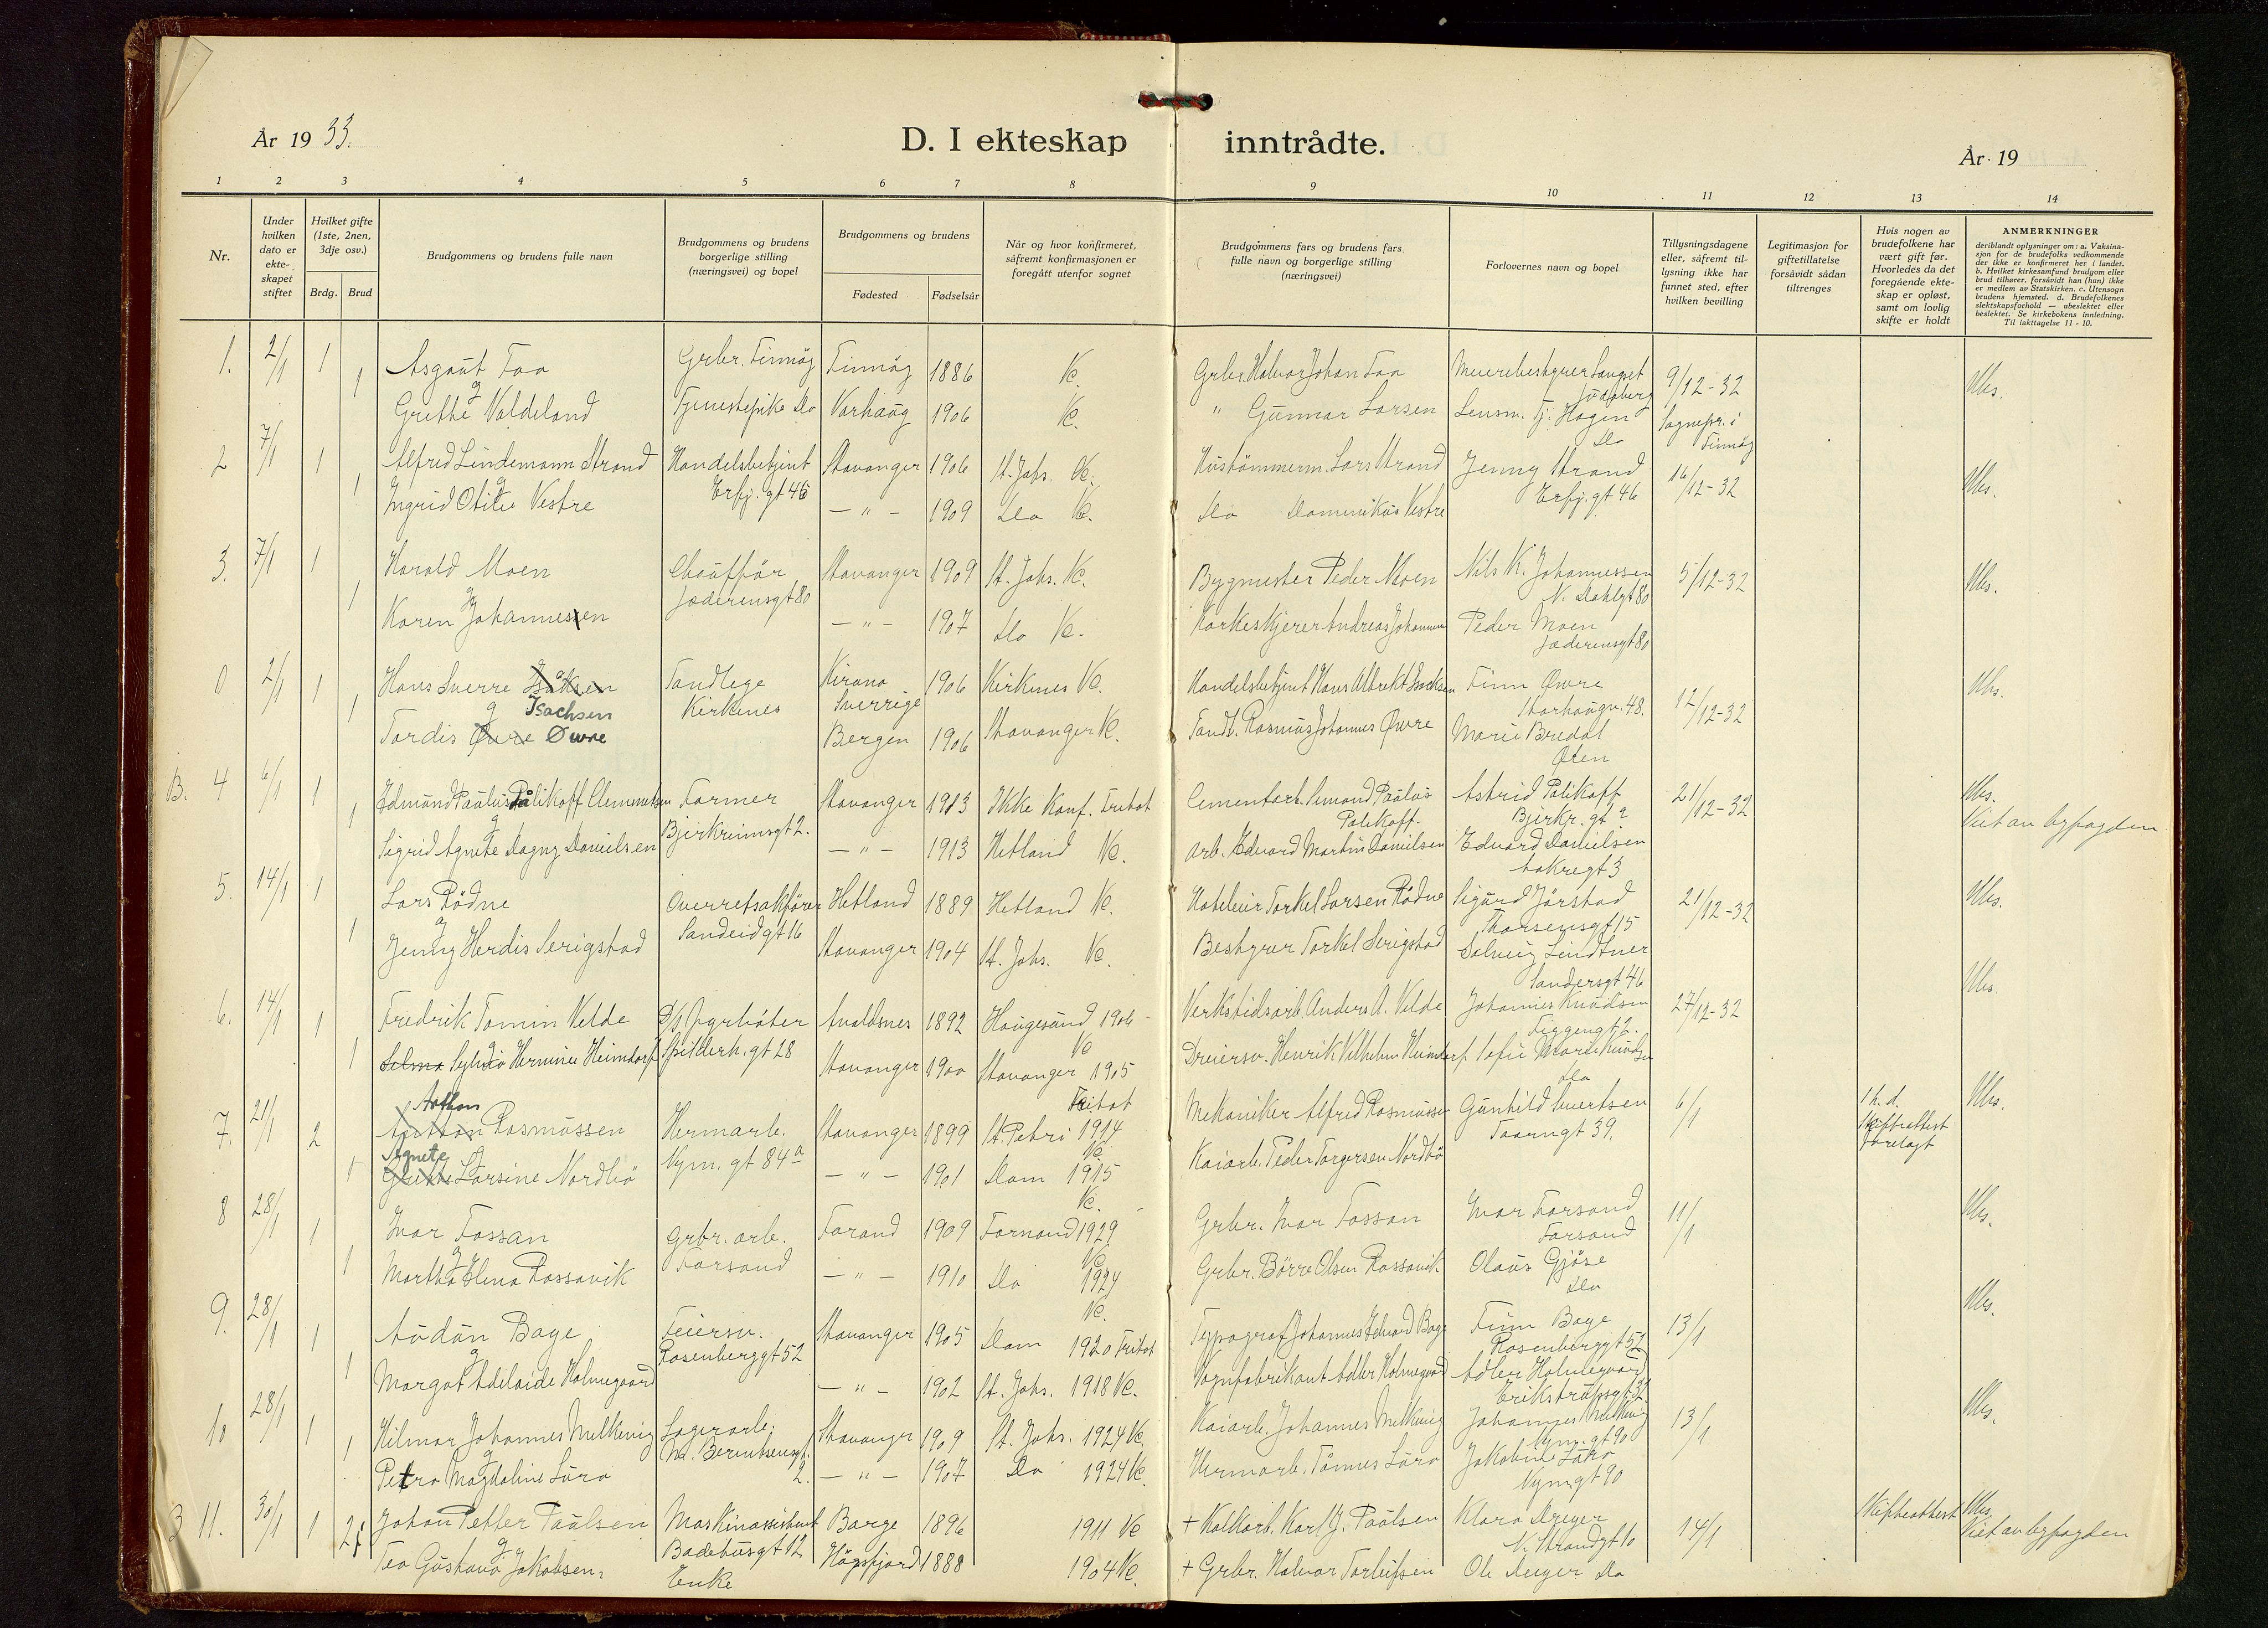 År 1933.
D. I ekteskap inntrådte.
År 19
1 2 3 4 5 6 7 8 9 10 11 12 13 14
Nr.
Under hvilken dato er ekte-skapet stiftet
Hvilket gifte (1ste, 2nen, 3dje osv.)
Brdg. Brud
Brudgommens og brudens fulle navn
Brudgommens og brudens borgerlige stilling (næringsvei) og bopel
Brudgommens og brudens
Fødested Fødselsår
Når og hvor konfirmeret, såfremt konfirmasjonen er foregått utenfor sognet
Brudgommens fars og brudens fars fulle navn og borgerlige stilling (næringsvei)
Forlovernes navn og bopel
Tillysningsdagene eller, såfremt til-lysning ikke har funnet sted, efter hvilken bevilling
Legitimasjon for giftetillatelse forsåvidt sådan tiltrenges
Hvis nogen av brudefolkene har vært gift før. Hvorledes da det foregående ekte-skap er opløst, samt om lovlig skifte er holdt
ANMERKNINGER
deriblandt oplysninger om: a. Vaksina-sjon for de brudefolks vedkommende der ikke er konfirmeret her i landet. b. Hvilket kirkesamfund brudgom eller brud tilhører, forsåvidt han (hun) ikke er medlem av Statskirken. c. Utensogn brudens hjemsted. d. Brudefolkenes slektskapsforhold — ubeslektet eller beslektet. Se kirkebokens innledning. Til iakttagelse 11 - 10.
1. 2/1 1 Asgaut Foa Grbr. Finnøy Finnøy 1886 K. Grbr. Halvor Johan Foa Meieribestyrer 9/12-32 Ubs.
1 Grethe Valdeland Tjenestepike Do Varhaug 1906 K. " Gunnar Larsen Lensm. Tj. Hagen Do Sognepr. i Finnøy
2 7/1 1 Alfred Lindemann Strand Handelsbetjent Stavanger 1906 St. Johs. K. Hustømmerm. Lars Strand Jenny Strand 16/12-32 Ubs.
1 Ingrid Otilie Vestre Erfj. gt 46 — " — 1909 Do K. Do Dominikus Vestre Erfj. gt 46
3. 7/1 1 Harald Moen Chauffør Stavanger 1909 St. Johs. K. Bygmester Peder Moen Nils K. Johannessen N. Dahlsgt 80 5/12-32 Ubs.
1 Karen Johannessen Jæderensgt 80 — " — 1907 Do K. Korkeskjerer Andreas Johannesen Peder Moen Jæderensgt 80
0 2/1 1 Hans Sverre Isaksen Isachsen Tandlege Kiruna Sverrige 1906 Kirkenes K. Handelsbetjent Hans Albrekt Isaksen Finn Øvre Storhaugv. 48. 12/12-32 Ubs.
1 Tordis Øvre Øwre Kirkenes Bergen 1906 Stavanger K. Tandl. Rasmus Johannes Øvre Marie Bredal
B. 4 6/1 1 Edmund Paulus Palikoff Clemmetsen Farmer Stavanger 1913 Ikke Konf. Fritat Cementarb. Simond Paulus Palikoff. Astrid Palikoff Bjerkr. gt 2 21/12-32 Ubs. Viet av byfogden
1 Sigrid Agnete Dagny Danielsen Bjerkreimsgt 2. — " — 1913 Hetland K. Arb. Edvard Martin Danielsen Edvard Danielsen Aakregt 3
5. 14/1 1 Lars Rødne Overretsakfører Hetland 1889 Hetland K. Hoteleier Torkel Larsen Rødne Sigurd Jørstad Thorsensgt 15 21/12-32 Ubs.
1 Jenny Herdis Serigstad Sandeidgt 16 Stavanger 1904 St. Johs. K. Bestyrer Torkel Serigstad Solveig Lindtner Sandersgt 46
6. 14/1 1 Fredrik Tomin Velde D/S fyrbøter Avaldsnes 1892 Haugesund 1906 K Verkstedsarb. Anders A. Velde Johannes Knudsen 27/12-32 Ubs.
1 Selma Sylvia Hermine Heimdorf Spilderh. gt 28 Stavanger 1900 Stavanger 1905 Dreiersv. Henrik Vilhelm Heimdorf Sofie Marie Knudsen Do
7. 21/1 2 Anthon Arthur Rasmussen Hermarb. Stavanger 1899 St. Petri 1914 Fritat Mekaniker Alfred Rasmussen Gunhild Sivertsen Taarngt 39. 6/1 Skifteattest forelagt Ubs.
1 Grethe Agnete Larsine Nordbø Nym. gt 84 a — " — 1901 Dom 1915 K. Kaiarb. Peder Torgersen Nordbø
8 28/1 1 Ivar Fossan Grbr. arb. Forsand Forand 1909 Forsand 1929 K. Grbr. Ivar Fossan Ivar Forsand Forsand 11/1 Ubs.
1 Martha Elena Rossavik — " — 1910 Do 1924 K. Grbr. Børre Olsen Rossavik Olaus Gjøse Do
9. 28/1 1 Audun Bage Feiersv. Stavanger 1905 Dom 1920 Fritat Typograf Johannes Edvard Bage Finn Bage Rosenberggt 52 13/1 Ubs.
1 Margot Adelaide Holmegaard Rosenberggt 52 — " — 1902 St. Johs. 1918 K. Vognfabrikant Adler Holmegaard Adler Holmegaard
10 28/1 1 Hilmar Johannes Melkevig Lagerarb. Stavanger 1909 St. Johs. 1924 K. Kaiarb. Johannes Melkevig Johannes Melkevig Nym. gt 90 13/1 Ubs.
1 Petra Magdaline Lura 2. — " — 1907 Do 1924 K. Hermarb. Tønnes Lura Jakobine Lura Nym. gt 90
B 11. 30/1 1 Johan Petter Paulsen Maskinassistent Badehusgt 12 Barge 1896 1911 K + Kolkarb. Karl J. Paulsen Klara Dreyer N. Strandgt 10 14/1 Skifteattest Ubs. Viet av byfogden
2 Tea Gustava Jakobsen Enke Høgsfjord 1888 1904 K. + Grbr. Halvor Torleifsen Ole Dreyer Do